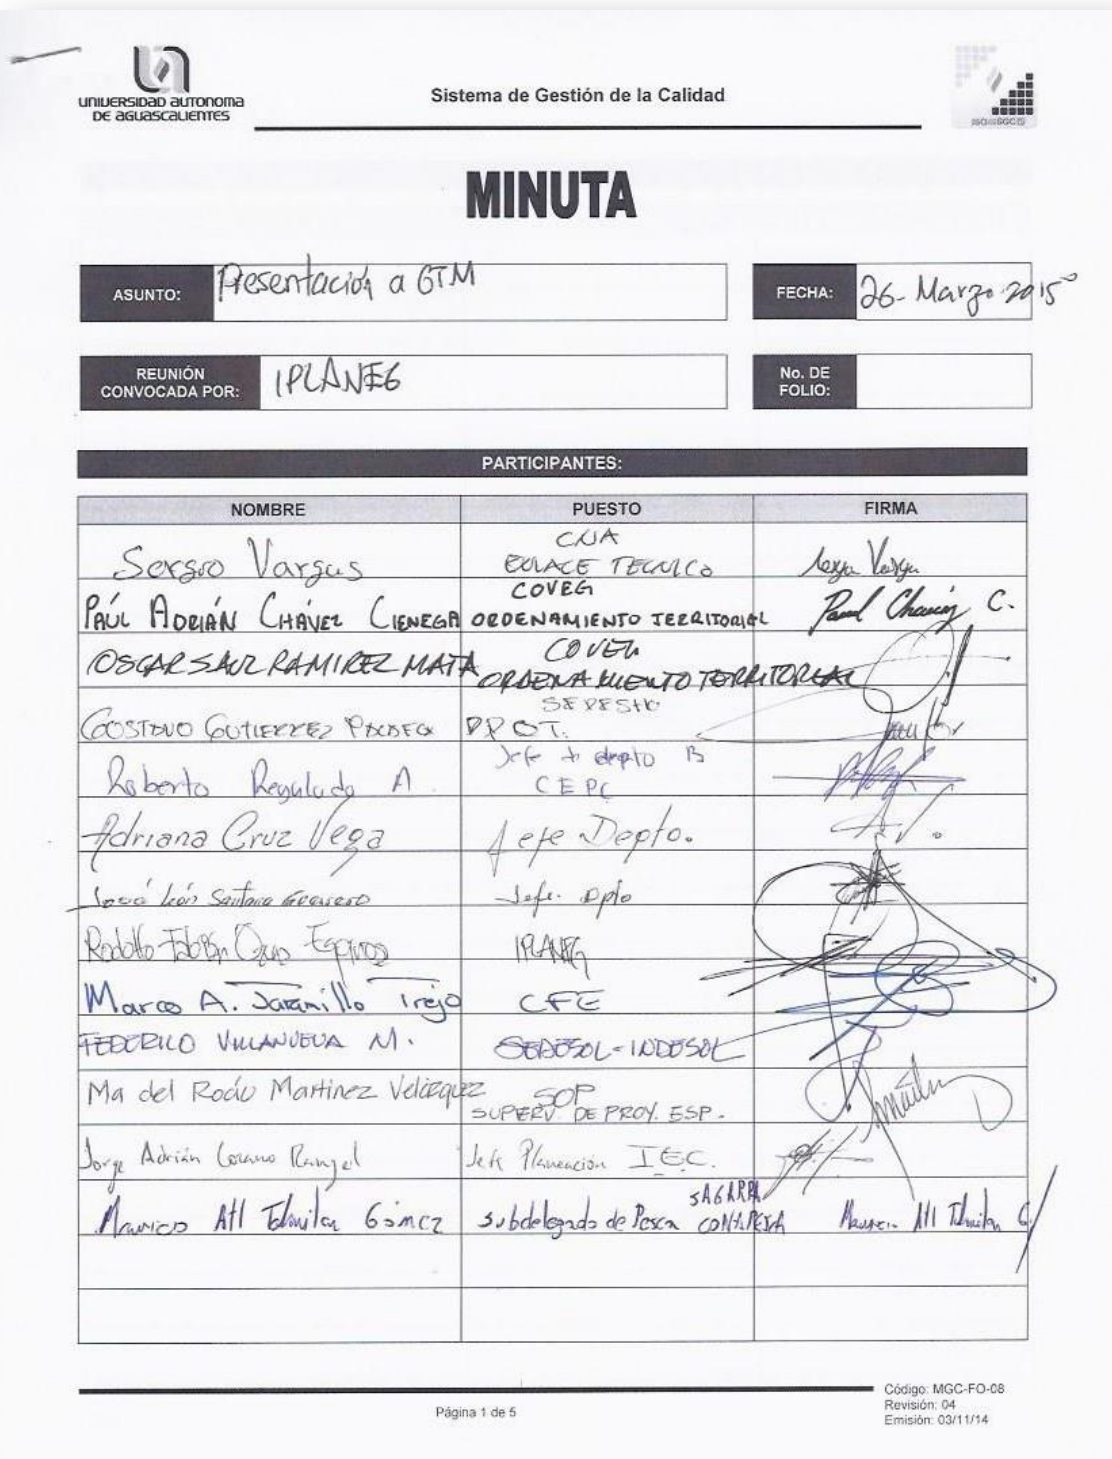 UNIVERSIDAD AUTONOMA
DE AGUASCALIENTES
Sistema de Gestión de la Calidad
MINUTA
ASUNTO: Presentación a GTM
FECHA: 26-Marzo-2015
REUNIÓN CONVOCADA POR: IPLANEG
No. DE FOLIO:
PARTICIPANTES:
NOMBRE PUESTO FIRMA
CNA
Sergio Vargas ENLACE TECNICO Sergio Vargas
COVEG
PAÚL ADRIÁN CHÁVEZ CIENEGA ORDENAMIENTO TERRITORIAL Paul Chavez C.
COVEG
OSCAR SAUL RAMIREZ MATA ORDENAMIENTO TERRITORIAL
GUSTAVO GUTIERREZ
Jefe de depto B
Roberto Regalado A. CEPC
Adriana Cruz Vega Jefe Depto.
José León Santana Guerrero Jefe. Dpto
Rodolfo Fabián IPLANEG
Marco A. Jaramillo Trejo CFE
FEDERICO VILLANUEVA M. SEDESOL-INDESOL
Ma del Rocío Martinez Velázquez SOP
SUPERV. DE PROY. ESP.
Jorge Adrián Lozano Rangel Jefe Planeación IEC.
SAGARPA
Mauricio Atl Gómez Subdelegado de Pesca CONAPESCA Mauricio Atl
Página 1 de 5
Código: MGC-FO-08
Revisión: 04
Emisión: 03/11/14